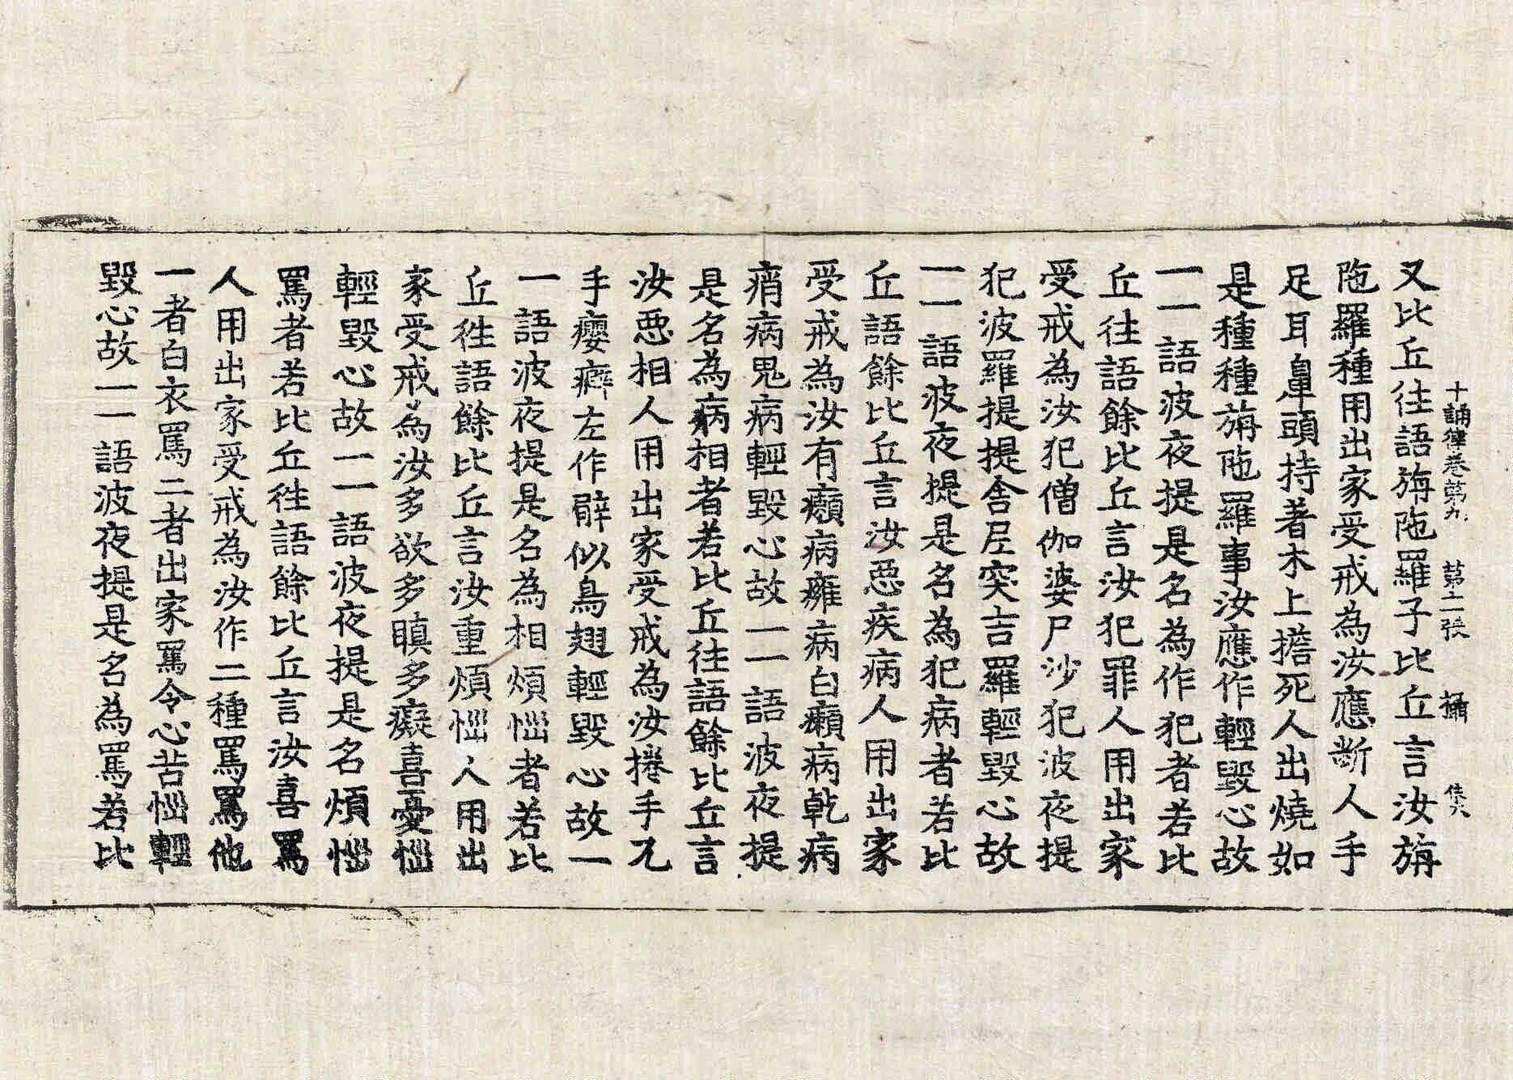 十誦律卷第九 第十一張 攝 隹六
又比丘往語旃陁羅子比丘言汝旃
陁羅種用出家受戒為汝應斷人手
足耳鼻頭持著木上擔死人出燒如
是種種旃陁羅事汝應作輕毀心故
一一語波夜提是名為作犯者若比
丘往語餘比丘言汝犯罪人用出家
受戒為汝犯僧伽婆尸沙犯波夜提
犯波羅提提舍尼突吉羅輕毀心故
一一語波夜提是名為犯病者若比
丘語餘比丘言汝惡疾病人用出家
受戒為汝有癩病癰病白癩病乾病
痟病鬼病輕毀心故一一語波夜提
是名為病相者若比丘往語餘比丘言
汝惡相人用出家受戒為汝捲手兀
手癭癖左作臂似鳥翅輕毀心故一
一語波夜提是名為相煩惱者若比
丘徃語餘比丘言汝重煩惱人用出
家受戒為汝多欲多瞋多癡喜憂惱
輕毀心故一一語波夜提是名煩惱
罵者若比丘徃語餘比丘言汝喜罵
人用出家受戒為汝作二種罵罵他
一者白衣罵二者出家罵令心苦惱輕
毀心故一一語波夜提是名為罵若比